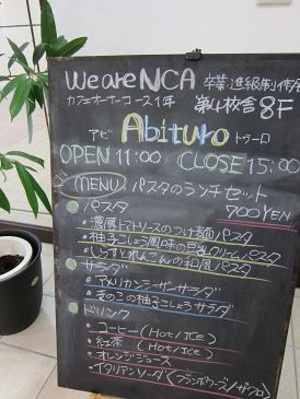 We are NCA 卒業進級制作展
カフェオーナーコース1年 第4校舎8F
アビ Abituro トゥーロ
OPEN 11:00 CLOSE 15:00
MENU パスタのランチセット
700YEN
パスタ
・濃厚トマトソースのつけ麺パスタ
・柚子こしょう風味の豆乳クリームパスタ
・しらすとれんこんの和風パスタ
サラダ
・アメリカンシーザーサラダ
・きのこの柚子こしょうサラダ
ドリンク
・コーヒー(Hot/ICE)
・紅茶(Hot/ICE)
・オレンジジュース
・イタリアンソーダ(フランボワーズ/ザクロ)